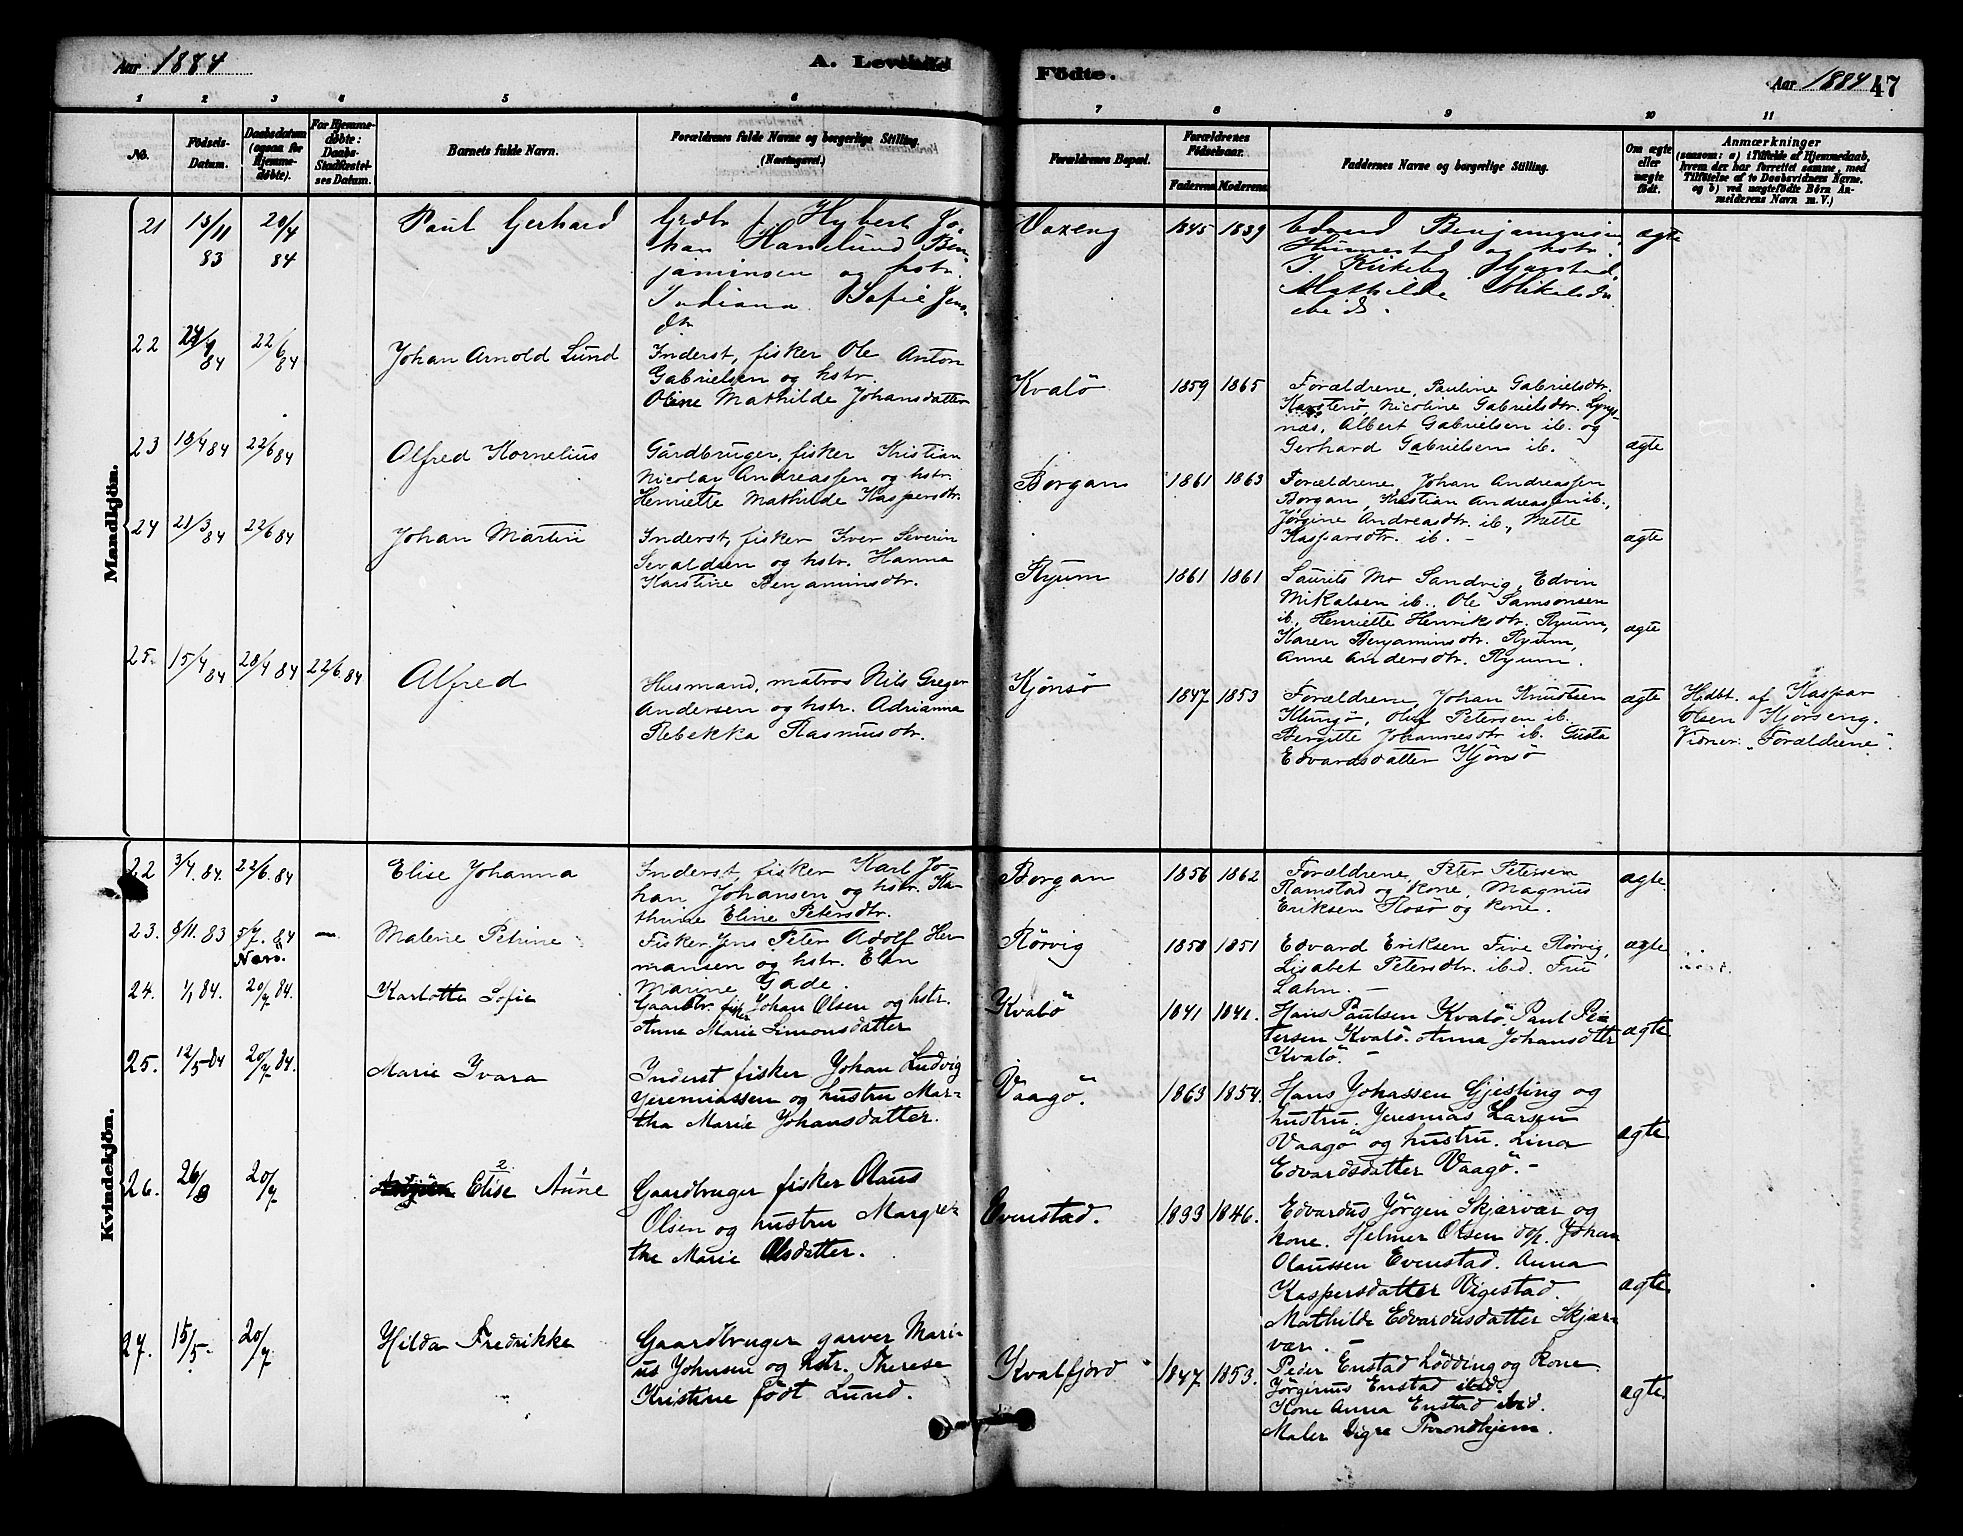 Aar 1884
A. Levende
Födte.
Aar 1884 47
1 2 3 4 5 6 7 8 9 10 11
No.
Födsels-Datum.
Daabsdatum (ogsaa for Hjemme-döbte).
For Hjemme-döbte: Daabs-Stadfæstel-ses Datum.
Barnets fulde Navn.
Forældrenes fulde Navne og borgerlige Stilling.
Forældrenes Bopæl.
Forældrenes Födselsaar.
Faderens Moderens
Faddernes Navne og borgerlige Stilling.
Om ægte eller uægte födt.
Anmærkninger
(saasom: a) i Tilfælde af Hjemmedaab, hvem der har forrettet samme, med Tilföielse af to Daabsvidners Navne, og b) ved uægtefödte Börn An-melderens Navn m. V.)
Mandkjön.
21 13/11 83 20/4 84 Paul Gerhard
Grdbr f. Hybert Jo-
han Hanelund Ben-
jaminsen og hstr.
Indiana Sofie Jens-
dtr
Voxeng 1845 1839
Edvard Benjaminsen
Hunnestad og hstr.
J. Kirkeby Harstad,
Mathilde Mikalsdtr
ibid.
ægte
22 84 22/6 84 Johan Arnold Lund
Inderst, fisker Ole Anton
Gabrielsen og hstr.
Oline Mathilde Johansdatter
Kvalö 1859 1865
Forældrene, Pauline Gabrielsdtr.
Karstenö, Nicoline Gabrielsdtr. Lyngs-
næs, Albert Gabrielsen ib. og
Gerhard Gabrielsen ib.
ægte
23 18/4 84 22/6 84 Alfred Kornelius
Gårdbruger, fisker Kristian
Nicolai Andreassen og hstr.
Henriette Mathilde Kaspersdtr.
Borgan 1861 1863
Forældrene, Johan Andreassen
Borgan, Kristian Andreassen ib.,
Jörgine Andreasdtr. ib., Mette
Kaspersdtr. ib. -
ægte
24 21/3 84 22/6 84 Johan Martin
Inderst, fisker Iver Severin
Sevaldsen og hstr. Hanna
Karstine Benjaminsdtr.
Ryum 1861 1861
Laurits Mo Sandvig, Edvin
Mikalsen ib., Ole Samsonsen
ib., Henriette Henriksdtr. Ryum,
Karen Benjaminsdtr. Ryum,
Anne Andersdtr. Ryum.
ægte
25. 15/4 84 28/4 84 22/6 84 Alfred
Husmand, matros Nils Greger
Andersen og hstr. Adrianna
Rebekka Rasmusdtr.
Kjönsö 1847 1853
Forældrene, Johan Knutsen
Klungö, Oluf Petersen ib.
Bergitte Johannesdtr ib. Gusta
Edvardsdatter Kjönsö
ægte
Hdbt. af Kaspar
Olsen Kjörseng.
Vidner: "Forældrene".
Kvindekjön.
22 3/4 84. 22/6. 84 Elise Johanna
Inderst, fisker Karl Jo-
han Johansen og hstr. Ka-
thrine Eline Petersdtr.
Borgan 1856 1862
Forældrene, Peter Petersen
Ramstad og kone, Magnus
Eriksen Rosö og kone.
ægte.
23. 8/11 83 5/7. 84 Nærö. — Malene Petrine
Fisker Jens Peter Adolf Her-
mansen og hstr. Elen
Marine Gade.
Rörvig 1850 1851
Edvard Eriksen Five Rörvig,
Lisabet Petersdtr. ibid. Fru
Lahn. —
ægte
24. 1/1 84. 20/7 84. Karlotte Sofie
Gaardbr. fisker Johan Olsen og hstr.
Anne Marie Simonsdatter
Kvalö 1841 1841.
Hans Paulsen Kvalö. Paul Pe-
tersen Kvalö. Anna Johansdtter
Kvalö. —
ægte
25. 12/5 84 20/7 84. Marie Ivara
Inderst fisker Johan Ludvig
Jeremiassen og hustru Mar-
tha Marie Johansdatter.
Vaagö. 1863 1854.
Hans Johassen Gjesling og
hustru. Jeremias Larsen
Vaagö og hustru. Lina
Edvardsdatter Vaagö. -
ægte
26. 26/3 20/7 Elise 2 Aune
Gaardbruger fisker Olaus
Olsen og hustru Margre-
the Marie Olsdatter.
Evenstad. 1833 1846.
Edvardus Jörgen Skjærvær og
kone. Helmer Olsen do/. Johan
Olaussen Evenstad. Anna
Kaspersdatter Vigestad.
Mathilde Edvardusdatter Skjær-
vær. —
ægte
27. 15/5. 20/7 Hilda Fredrikke
Gaardbruger garver Mari-
us Johnsen og hstr. Therese
Kristine födt Lund.
Kvalfjord 1847 1853.
Peder Enstad Lödding og Kone
Jörginus Enstad ibid.
Kone Anna Enstad ibid.
Maler Digre Trondhjem.
ægte